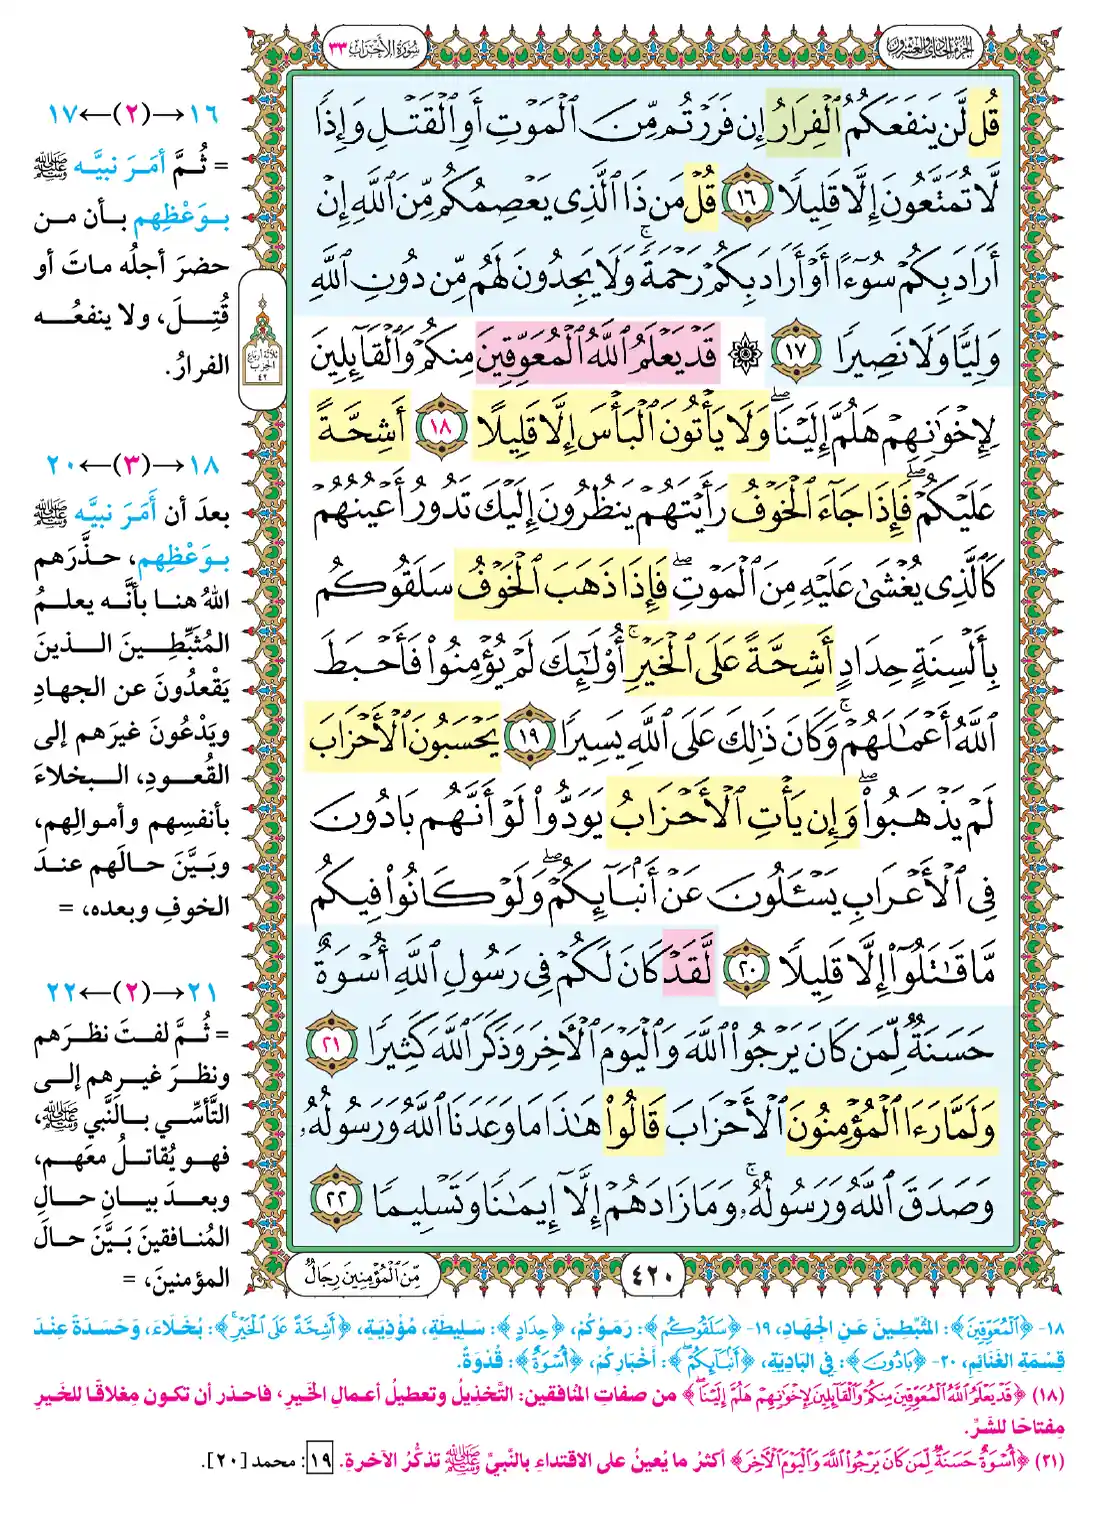 الجزء الحادي والعشرون
سورة الأحزاب ٣٣
قُل لَّن يَنفَعَكُمُ ٱلْفِرَارُ إِن فَرَرْتُم مِّنَ ٱلْمَوْتِ أَوِ ٱلْقَتْلِ وَإِذًا
لَّا تُمَتَّعُونَ إِلَّا قَلِيلًا ١٦ قُلْ مَن ذَا ٱلَّذِى يَعْصِمُكُم مِّنَ ٱللَّهِ إِنْ
أَرَادَ بِكُمْ سُوٓءًا أَوْ أَرَادَ بِكُمْ رَحْمَةً ۚ وَلَا يَجِدُونَ لَهُم مِّن دُونِ ٱللَّهِ
وَلِيًّا وَلَا نَصِيرًا ١٧ ۞ قَدْ يَعْلَمُ ٱللَّهُ ٱلْمُعَوِّقِينَ مِنكُمْ وَٱلْقَآئِلِينَ
لِإِخْوَٰنِهِمْ هَلُمَّ إِلَيْنَا ۖ وَلَا يَأْتُونَ ٱلْبَأْسَ إِلَّا قَلِيلًا ١٨ أَشِحَّةً
عَلَيْكُمْ ۖ فَإِذَا جَآءَ ٱلْخَوْفُ رَأَيْتَهُمْ يَنظُرُونَ إِلَيْكَ تَدُورُ أَعْيُنُهُمْ
كَٱلَّذِى يُغْشَىٰ عَلَيْهِ مِنَ ٱلْمَوْتِ ۖ فَإِذَا ذَهَبَ ٱلْخَوْفُ سَلَقُوكُم
بِأَلْسِنَةٍ حِدَادٍ أَشِحَّةً عَلَى ٱلْخَيْرِ ۚ أُو۟لَٰٓئِكَ لَمْ يُؤْمِنُوا۟ فَأَحْبَطَ
ٱللَّهُ أَعْمَٰلَهُمْ ۚ وَكَانَ ذَٰلِكَ عَلَى ٱللَّهِ يَسِيرًا ١٩ يَحْسَبُونَ ٱلْأَحْزَابَ
لَمْ يَذْهَبُوا۟ ۖ وَإِن يَأْتِ ٱلْأَحْزَابُ يَوَدُّوا۟ لَوْ أَنَّهُم بَادُونَ
فِى ٱلْأَعْرَابِ يَسْـَٔلُونَ عَنْ أَنۢبَآئِكُمْ ۖ وَلَوْ كَانُوا۟ فِيكُم
مَّا قَٰتَلُوٓا۟ إِلَّا قَلِيلًا ٢٠ لَّقَدْ كَانَ لَكُمْ فِى رَسُولِ ٱللَّهِ أُسْوَةٌ
حَسَنَةٌ لِّمَن كَانَ يَرْجُوا۟ ٱللَّهَ وَٱلْيَوْمَ ٱلْـَٔاخِرَ وَذَكَرَ ٱللَّهَ كَثِيرًا ٢١
وَلَمَّا رَءَا ٱلْمُؤْمِنُونَ ٱلْأَحْزَابَ قَالُوا۟ هَٰذَا مَا وَعَدَنَا ٱللَّهُ وَرَسُولُهُۥ
وَصَدَقَ ٱللَّهُ وَرَسُولُهُۥ ۚ وَمَا زَادَهُمْ إِلَّآ إِيمَٰنًا وَتَسْلِيمًا ٢٢
٤٢٠
مِّنَ ٱلْمُؤْمِنِينَ رِجَالٌ
ثلاثة أرباع
الحزب
٤٢
١٦→(٢)←١٧
= ثُمَّ أمَرَ نبيَّه ﷺ
بوَعْظِهم بأن من
حضرَ أجلُه ماتَ أو
قُتِلَ، ولا ينفعُه
الفرارُ.
١٨→(٣)←٢٠
بعدَ أن أَمَرَ نبيَّه ﷺ
بوَعْظِهم، حذَّرَهم
اللهُ هنا بأنَّه يعلمُ
المُثبِّطِينَ الذينَ
يَقْعدُونَ عن الجهادِ
ويَدْعُونَ غيرَهم إلى
القُعودِ، البخلاءَ
بأنفسِهم وأموالِهم،
وبَيَّنَ حالَهم عندَ
الخوفِ وبعده، =
٢١→(٢)←٢٢
= ثُمَّ لفتَ نظرَهم
ونظرَ غيرِهم إلى
التَّأسِّي بالنَّبي ﷺ،
فهو يُقاتلُ معَهم،
وبعدَ بيانِ حالِ
المُنافقينَ بَيَّنَ حالَ
المؤمنينَ، =
١٨- ﴿ٱلْمُعَوِّقِينَ﴾: المُثَبِّطِينَ عَنِ الجِهَادِ، ١٩- ﴿سَلَقُوكُم﴾: رَمَوْكُمْ، ﴿حِدَادٍ﴾: سَلِيطَةٍ، مُؤْذِيَةٍ، ﴿أَشِحَّةً عَلَى ٱلْخَيْرِ ۚ﴾: بُخَلَاءَ، وَحَسَدَةً عِنْدَ
قِسْمَةِ الغَنَائِمِ، ٢٠- ﴿بَادُونَ﴾: فِي البَادِيَةِ، ﴿أَنۢبَآئِكُمْ ۖ﴾: أَخْبَارِكُمْ، ﴿أُسْوَةٌ﴾: قُدْوَةٌ.
(١٨) ﴿قَدْ يَعْلَمُ ٱللَّهُ ٱلْمُعَوِّقِينَ مِنكُمْ وَٱلْقَآئِلِينَ لِإِخْوَٰنِهِمْ هَلُمَّ إِلَيْنَا ۖ﴾ من صفاتِ المُنافقين: التَّخذِيلُ وتعطيلُ أعمالِ الخيرِ، فاحذر أن تكون مِغلاقًا للخَيرِ
مِفتاحًا للشَرِّ.
(٢١) ﴿أُسْوَةٌ حَسَنَةٌ لِّمَن كَانَ يَرْجُوا۟ ٱللَّهَ وَٱلْيَوْمَ ٱلْـَٔاخِرَ﴾ أكثرُ ما يُعينُ على الاقتداءِ بالنَّبيِّ ﷺ تذكُّرُ الآخرةِ. ١٩: محمد [٢٠].